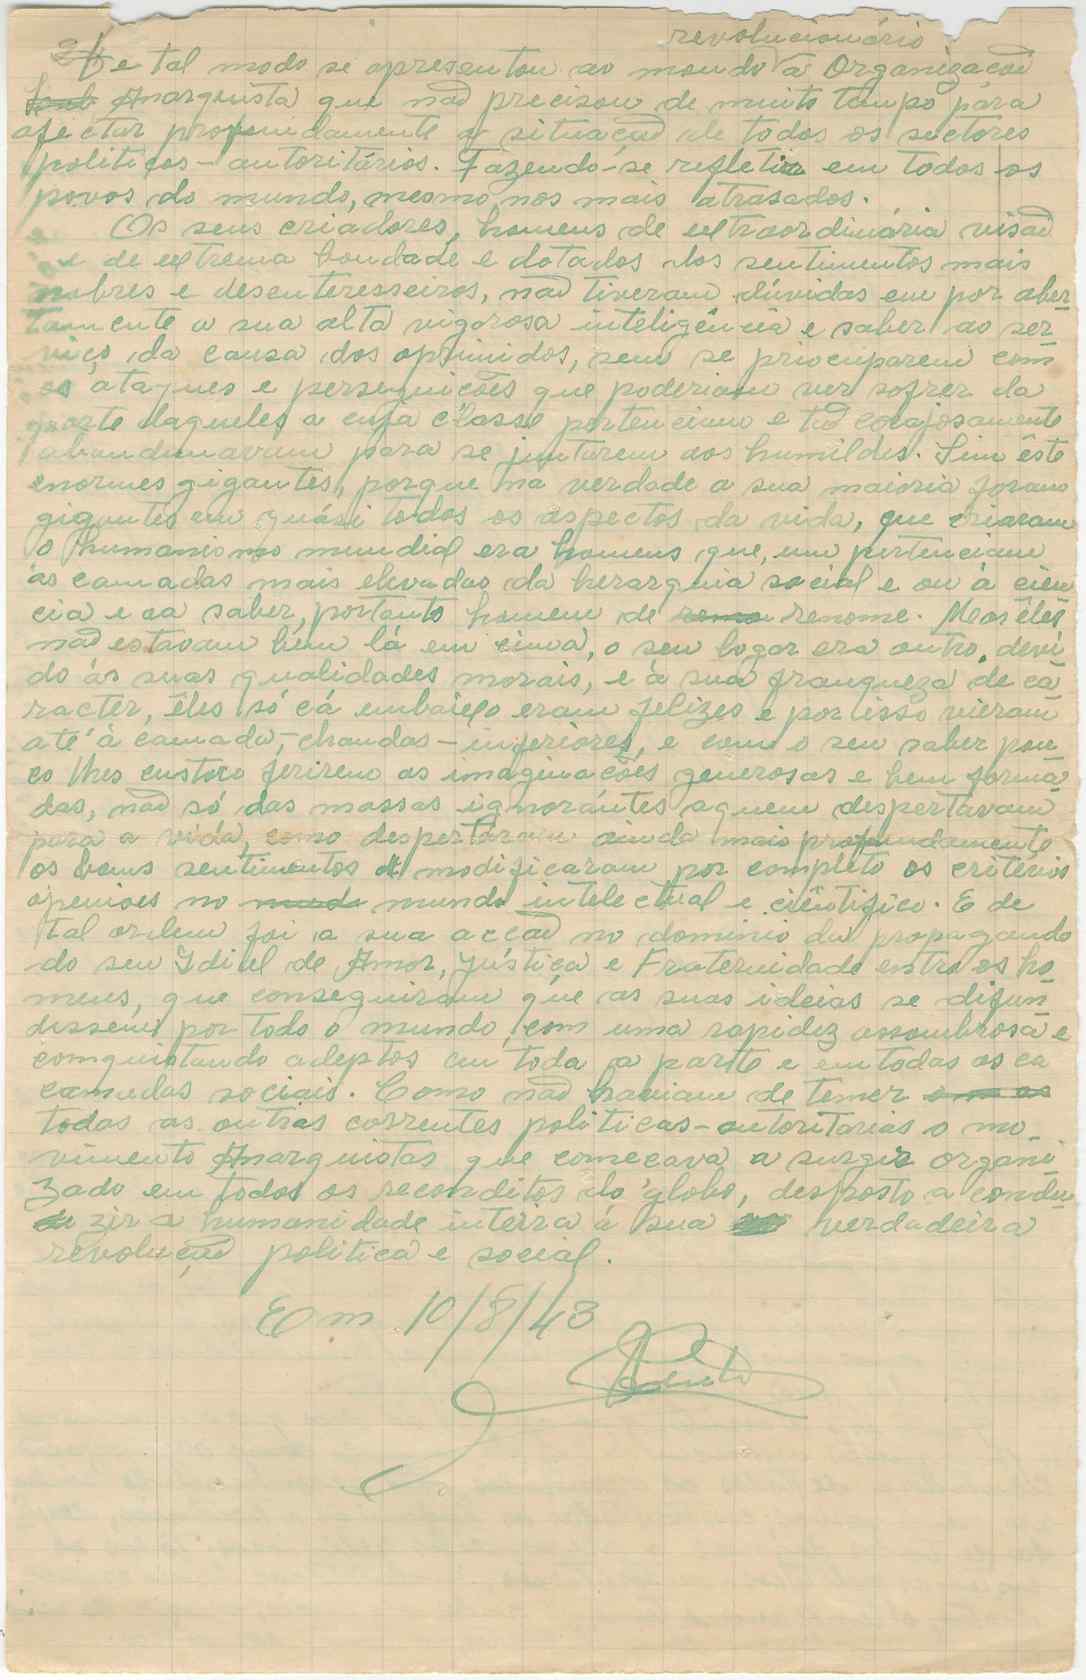 revolucionário
De tal modo se apresentou ao mundo a Organização
Anarquista que não precizou de muito tempo para
afectar profundamente a situação de todos os sectores
politicos-autoritários. Fazendo-se refletir em todos os
povos do mundo, mesmo nos mais atrasados.
Os seus criadores, homens de extraordinária visão
e de extrema bondade e dotados dos sentimentos mais
nobres e desenteresseiros, não tiveram dúvidas em por aber-
tamente a sua alta vigorosa inteligência e saber ao ser-
viço da causa dos oprimidos, sem se priocuparem com
os ataques e perseguições que poderiam vir sofrer da
parte daqueles a cuja classe pertenciam e tão corajosamente
abandunavam para se juntarem aos humildes. Sim êste
enormes gigantes, porque na verdade a sua maioria foram
gigantes em quási todos os aspectos da vida, que criaram
o humanismo mundial era homens que, um pertenciam
ás camadas mais elevadas da herarquia social e ou á ciên
cia e oa saber, portanto homem de renome. Mas êles
não estavam bem lá em cima, o seu logar era outro, devi
do ás suas qualidades morais, e á sua franqueza de ca
racter, êles só cá embaixo eram felizes e por isso vieram
até á camada,-chamdas-inferiores, e com o seu saber pou
co lhes custoro ferirem as imaginações generosas e bem forma
das, não só das massas ignorántes aquem despertavam
para a vida, como despertaram ainda mais profundamente
os bons sentimentos modificaram por completo os critérios
openiões no mundo intelectual e ciêntifico. E de
tal ordem foi a sua acção no dominio da propaganda
do seu Idial de Amor, Justiça e Fraternidade entre os ho
mens, que conseguiram que as suas ideias se difun
dissem por todo o mundo, com uma rapidez assombrosa e
comquistando adeptos em toda a parte e em todas as ca
camadas sociais. Como não haviam de temer
todas as outras correntes politicas-autoritarias o mo-
vimento Anarquistas que começava a surgir organi
zado em todos os reconditos do globo, desposto a condu-
zir a humanidade inteira á sua verdadeira
revolução politica e social.
Em 10/8/43